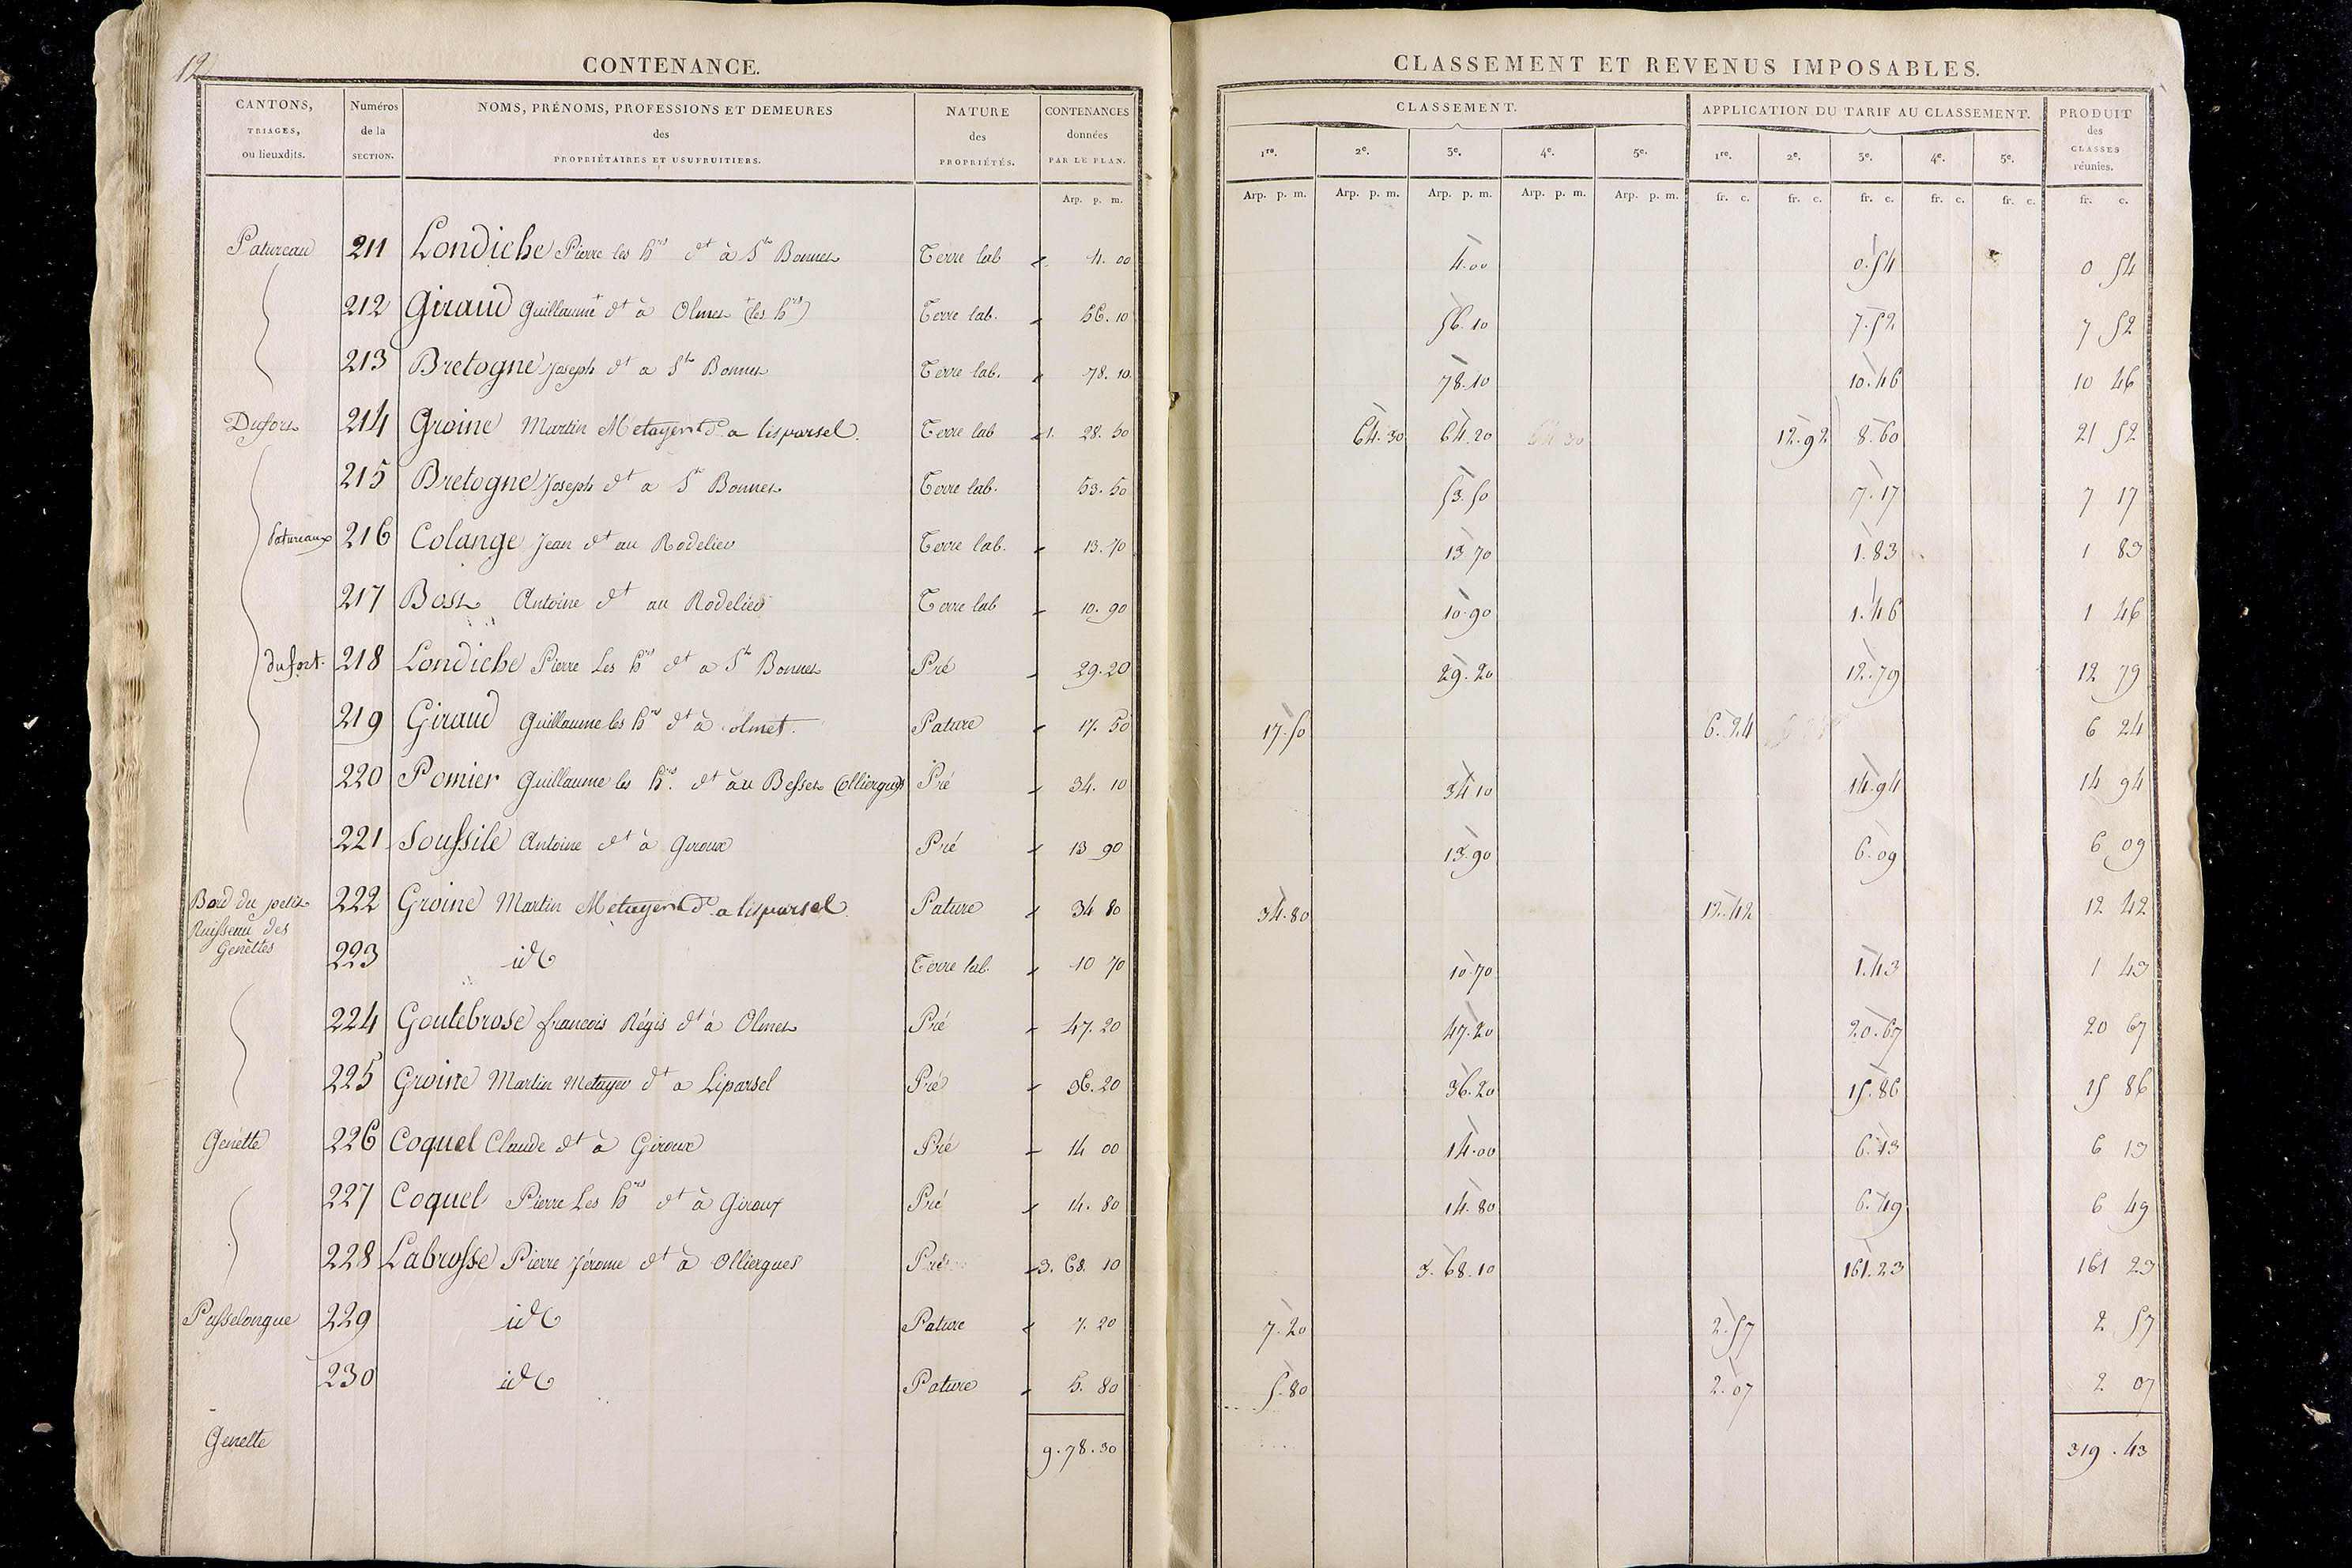 12
CONTENANCE.
CANTONS, TRIAGES, ou lieuxdits. Numéros de la SECTION. NOMS, PRÉNOMS, PROFESSIONS ET DEMEURES des PROPRIÉTAIRES ET USUFRUITIERS. NATURE des PROPRIÉTÉS. CONTENANCES données PAR LE PLAN.
Arp. p. m.
CLASSEMENT ET REVENUS IMPOSABLES.
CLASSEMENT. APPLICATION DU TARIF AU CLASSEMENT. PRODUIT des CLASSES réunies.
1re. 2e. 3e. 4e. 5e. 1re. 2e. 3e. 4e. 5e.
Arp. p. m. Arp. p. m. Arp. p. m. Arp. p. m. Arp. p. m. fr. c. fr. c. fr. c. fr. c. fr. c. fr. c.
Patureau 211 Londiche Pierre les hrs dt à St Bonnet Terre lab 4. 00 4.00 0.54 0 54
212 Giraud Guillaume dt à Olmet (les hrs) Terre lab. 56. 10 56.10 7.52 7 52
213 Bretogne Joseph dt a St Bonnet Terre lab. 78. 10 78.10 10.46 10 46
Dufort 214 Groine Martin Metayer dt a lisparsel. Terre lab 1. 28. 50 64.30 64.20 64 30 12.92 8.60 21 52
215 Bretogne Joseph dt a St Bonnet Terre lab. 53. 50 53.50 7.17 7 17
Patureaux 216 Colange Jean dt au Rodelieu Terre lab. 13. 70 13 70 1.83 1 83
217 Bost Antoine dt au Rodelieu Terre lab 10. 90 10.90 1.46 1 46
du fort. 218 Londiche Pierre Les hrs dt a St Bonnet Pré 29.20 29.20 12.79 12 79
219 Giraud Guillaume les hrs dt à olmet. Pature 17. 50 17.50 6.24 6 24
220 Pomier Guillaume les hrs. dt au Besset (olliergues Pré 34. 10 34 10 14.94 14 94
221 Soussile Antoine dt à Giroux Pré 13 90 13.90 6.09 6 09
Bord du petit Ruisseau des Genèttes 222 Groine Martin Metayer dt a lisparsel. Pature 34 80 34.80 12.42 12 42
223 id Terre lab. 10 70 10.70 1.43 1 43
224 Goutebrose francois Régis dt à Olmet Pré 47. 20 47.20 20.67 20 67
225 Groine Martin Metayer dt a Liparsel Pré 36.20 36.20 15.86 15 86
Genètte 226 Coquel Claude dt à Giroux Pré 14 00 14.00 6.13 6 13
227 Coquel Pierre Les hrs dt à Giroux Pré 14. 80 14.80 6.49 6 49
228 Labrosse Pierre Jérome dt à Olliergues Pré 3. 68. 10 3.68.10 161.23 161 23
Passelongue 229 id Pature 7. 20 7.20 2.57 2 57
230 id Pature 5. 80 5.80 2.07 2 07
Genette 9.78.30 319.43